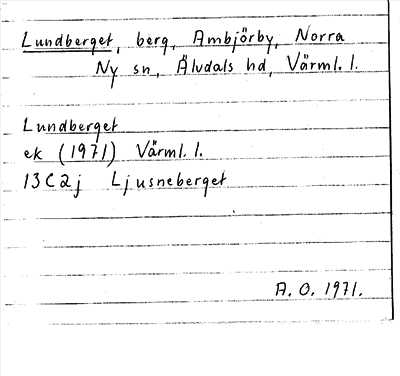 Lundberget, berg, Ambjörby, Norra
Ny sn, Älvdals hd, Värml. l.
Lundberget
ek (1971) Värml. l.
13C2j Ljusneberget
A. O. 1971.